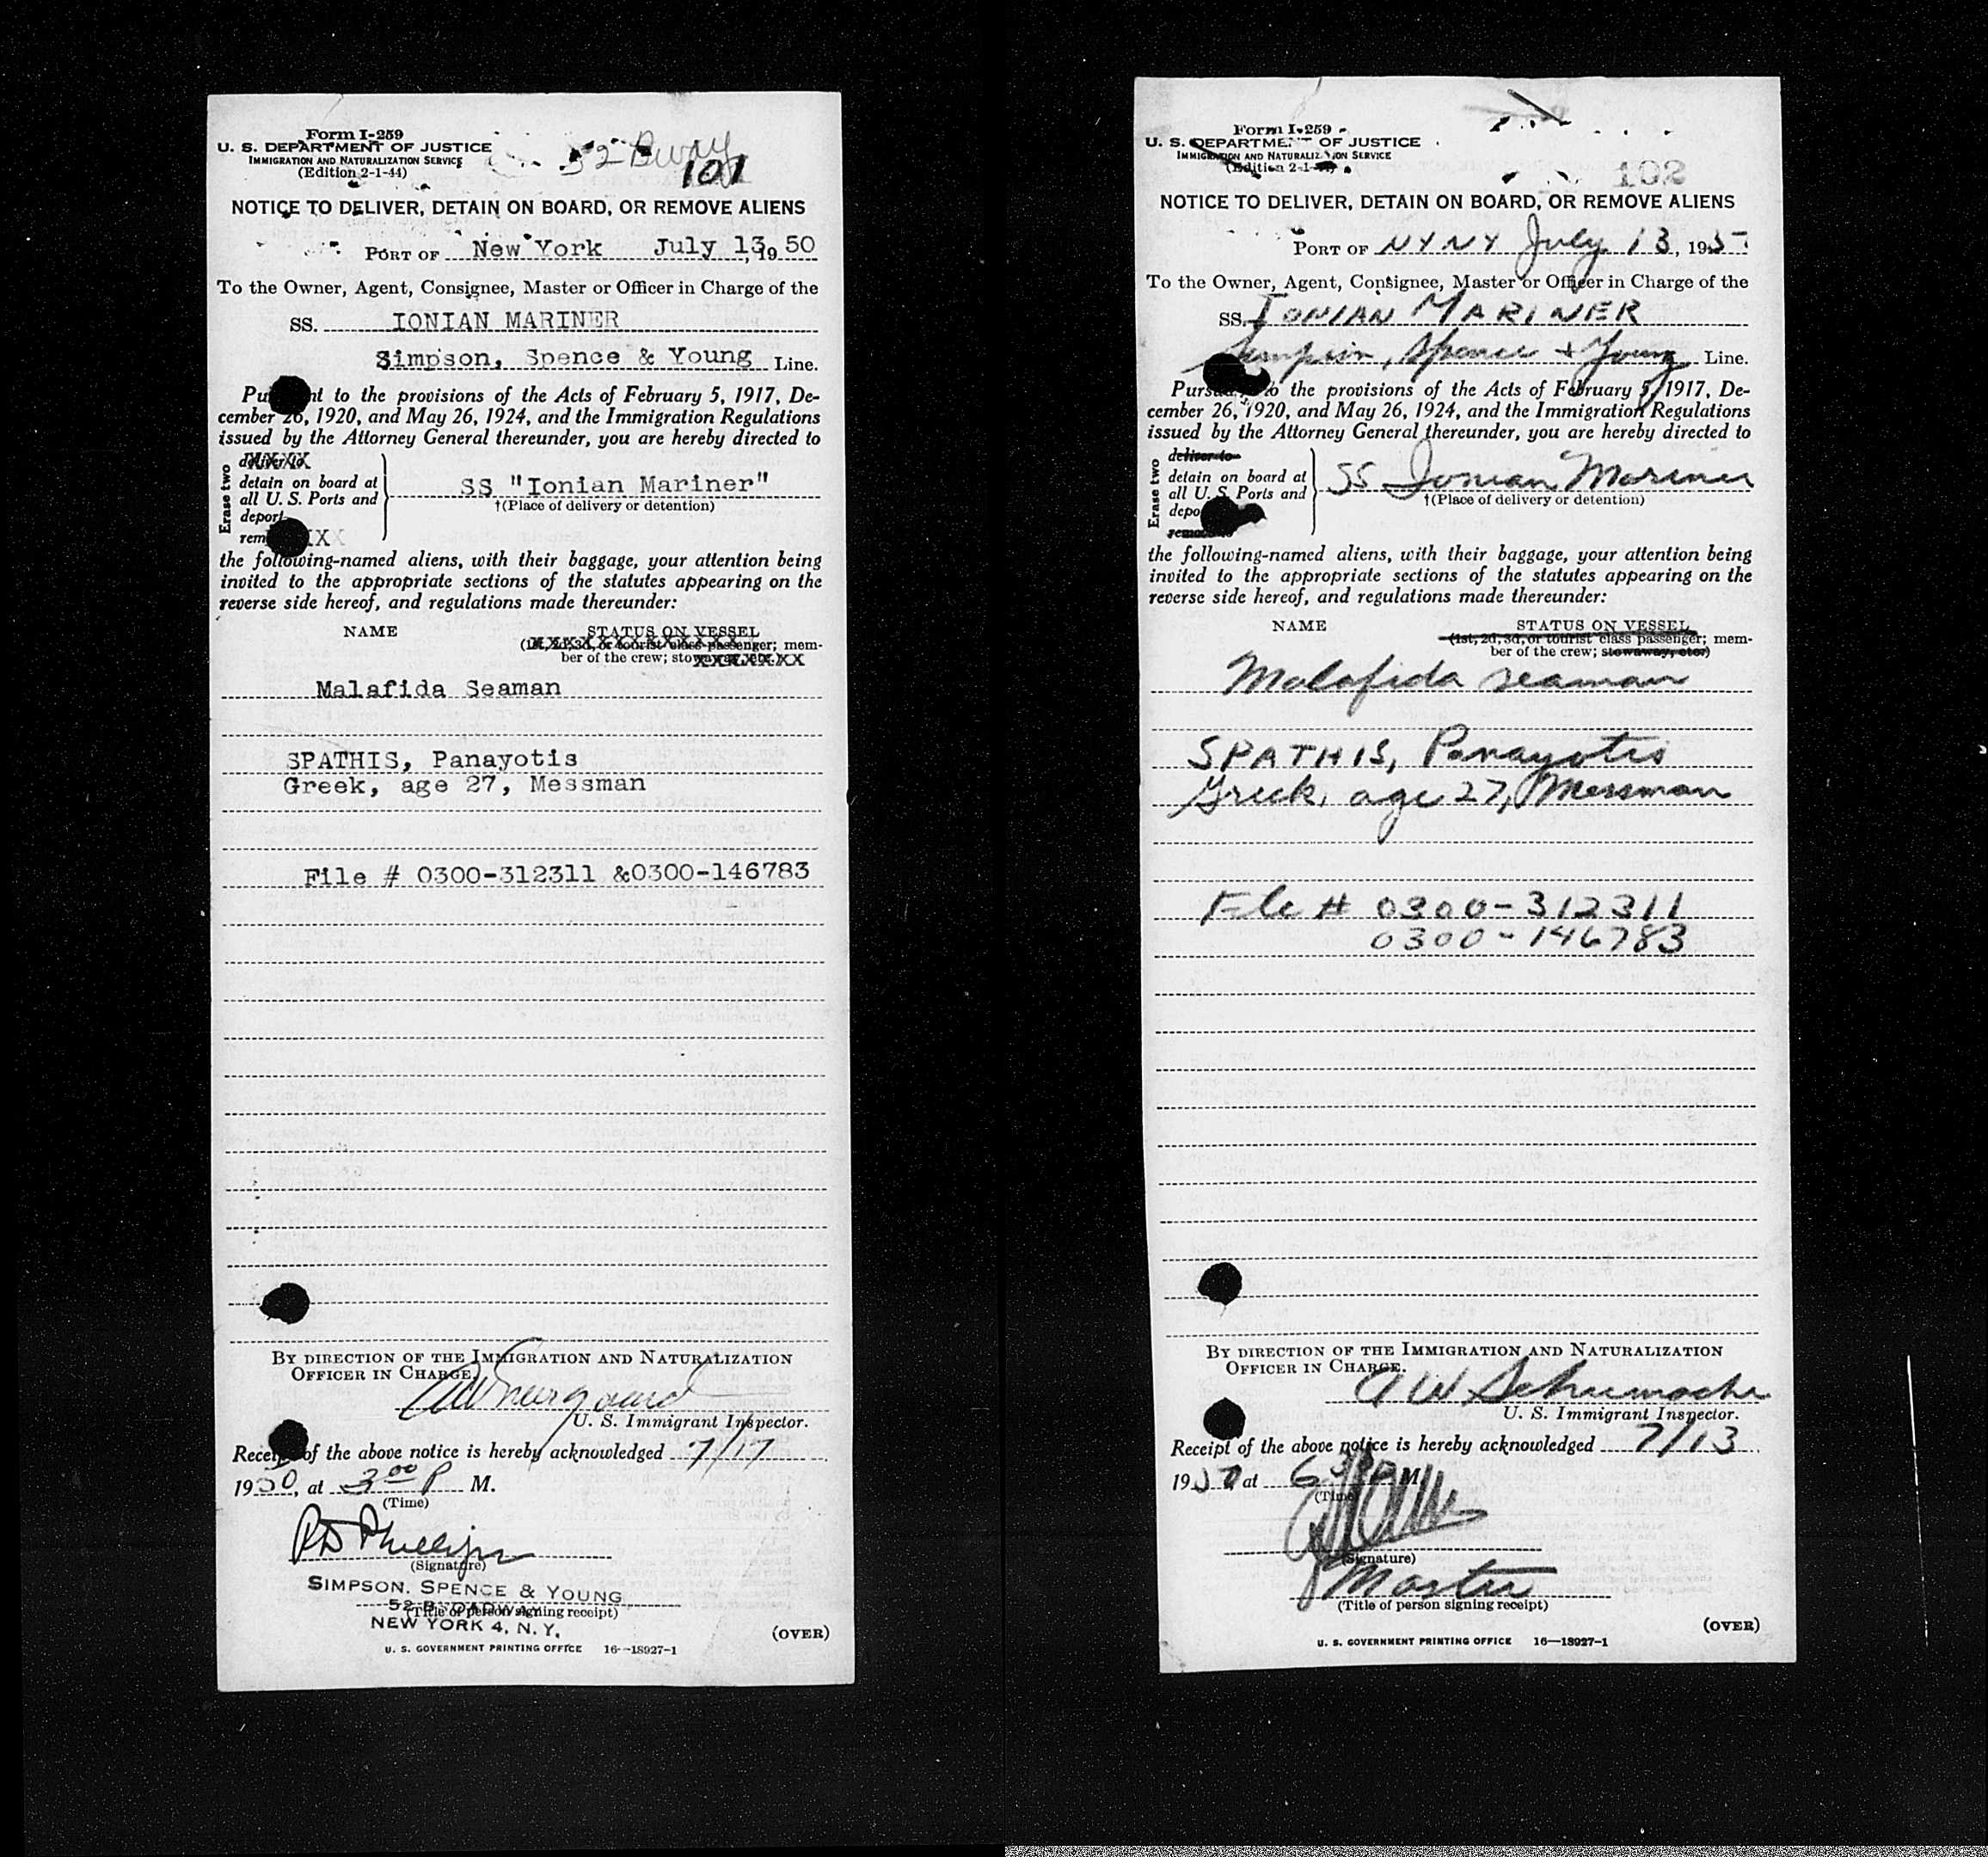 Form I-259
U. S. DEPARTMENT OF JUSTICE
IMMIGRATION AND NATURALIZATION SERVICE
(Edition 2-1-44)
52 Bway
101
NOTICE TO DELIVER, DETAIN ON BOARD, OR REMOVE ALIENS
PORT OF New York July 13, 1950
To the Owner, Agent, Consignee, Master or Officer in Charge of the
SS. IONIAN MARINER
Simpson, Spence & Young Line.
Pursuant to the provisions of the Acts of February 5, 1917, De-
cember 26, 1920, and May 26, 1924, and the Immigration Regulations
issued by the Attorney General thereunder, you are hereby directed to
Erase two
deliver to
detain on board at
all U. S. Ports and
deport
SS "Ionian Mariner"
†(Place of delivery or detention)
the following-named aliens, with their baggage, your attention being
invited to the appropriate sections of the statutes appearing on the
reverse side hereof, and regulations made thereunder:
NAME STATUS ON VESSEL
(1st, 2d, 3d, or tourist class passenger; mem-
ber of the crew; stowaway, etc.)
Malafida Seaman
SPATHIS, Panayotis
Greek, age 27, Messman
File # 0300-312311 &0300-146783
BY DIRECTION OF THE IMMIGRATION AND NATURALIZATION
OFFICER IN CHARGE.
U. S. Immigrant Inspector.
Receipt of the above notice is hereby acknowledged 7/17
1950, at 3 00 P M.
(Time)
RD Phillips
(Signature)
SIMPSON, SPENCE & YOUNG
52 BROADWAY
(Title of person signing receipt)
NEW YORK 4, N. Y.
(OVER)
U. S. GOVERNMENT PRINTING OFFICE 16—18927-1
Form I-259
U. S. DEPARTMENT OF JUSTICE
IMMIGRATION AND NATURALIZATION SERVICE
(Edition 2-1-44)
102
NOTICE TO DELIVER, DETAIN ON BOARD, OR REMOVE ALIENS
PORT OF NY NY July 13, 195
To the Owner, Agent, Consignee, Master or Officer in Charge of the
SS. IONIAN MARINER
Simpson, Spence + Young Line.
Pursuant to the provisions of the Acts of February 5, 1917, De-
cember 26, 1920, and May 26, 1924, and the Immigration Regulations
issued by the Attorney General thereunder, you are hereby directed to
Erase two
deliver to
detain on board at
all U. S. Ports and
deport
remove to
SS Ionian Mariner
†(Place of delivery or detention)
the following-named aliens, with their baggage, your attention being
invited to the appropriate sections of the statutes appearing on the
reverse side hereof, and regulations made thereunder:
NAME STATUS ON VESSEL
(1st, 2d, 3d, or tourist class passenger; mem-
ber of the crew; stowaway, etc.)
Malafida seaman
SPATHIS, Panayotis
Greek, age 27, Messman
File # 0300-312311
0300-146783
BY DIRECTION OF THE IMMIGRATION AND NATURALIZATION
OFFICER IN CHARGE.
A W Schumacher
U. S. Immigrant Inspector.
Receipt of the above notice is hereby acknowledged 7/13
1950 at 6 M.
(Time)
(Signature)
Master
(Title of person signing receipt)
(OVER)
U. S. GOVERNMENT PRINTING OFFICE 16—18927-1